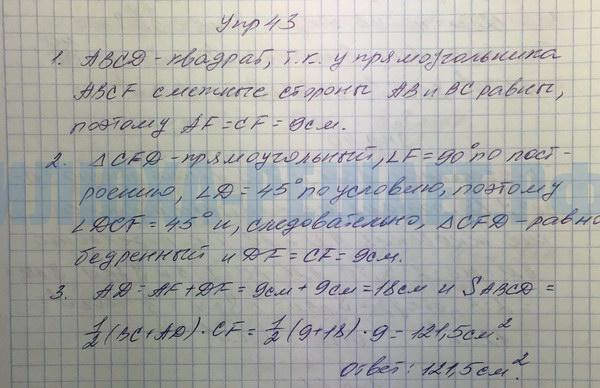 Упр 43
1. ABCD - квадрат, т.к. у прямоугольника
ABCF смежные стороны AB и BC равны,
поэтому AF = CF = 9см.
2. △CFD - прямоугольный, ∠F = 90° по пост-
роению, ∠D = 45° по условию, поэтому
∠DCF = 45° и, следовательно, △CFD - равно
бедренный и DF = CF = 9см.
3. AD = AF + DF = 9см + 9см = 18см и SABCD =
1/2 (BC + AD) · CF = 1/2 (9 + 18) · 9 = 121,5см²
Ответ: 121,5см²